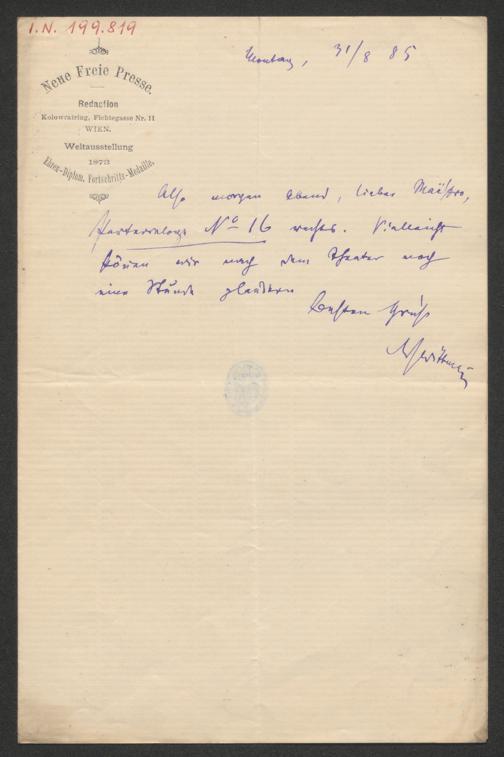 I.N. 199.819
Neue Freie Presse.
Redaction
Kolowratring, Fichtegasse Nr. 11
WIEN.
Weltausstellung
1873
Ehren-Diplom. Fortschritts-Medaille.
Montag, 31/8 85
Also morgen Abend, lieber Maistro,
Parterreloge No 16 rechts. Vielleicht
können wir nach dem Theater noch
eine Stunde plaudern
Besten Gruß
Wittmann